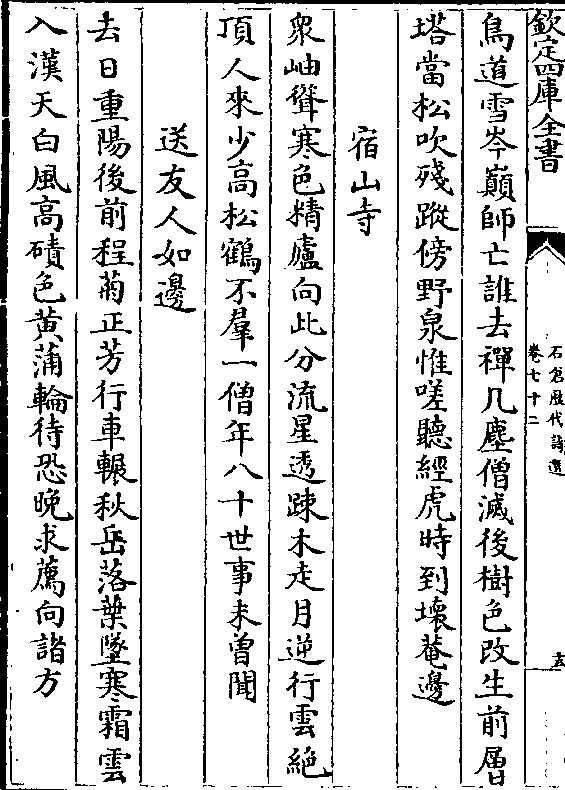 欽定四庫全書
石倉歷代詩選
卷七十二
鳥道雪岑巔師亡誰去禪几塵僧滅後樹色改生前層
塔當松吹殘蹤傍野泉惟嗟聽經虎時到壊菴邊
宿山寺
衆岫聳寒色精廬向此分流星透踈木走月逆行雲絶
頂人來少高松鶴不羣一僧年八十世事未曽聞
送友人如邊
去日重陽後前程菊正芳行車輾秋岳落葉墜寒霜雲
入漢天白風高磧色黄蒲輪待恐晚求薦向諸方